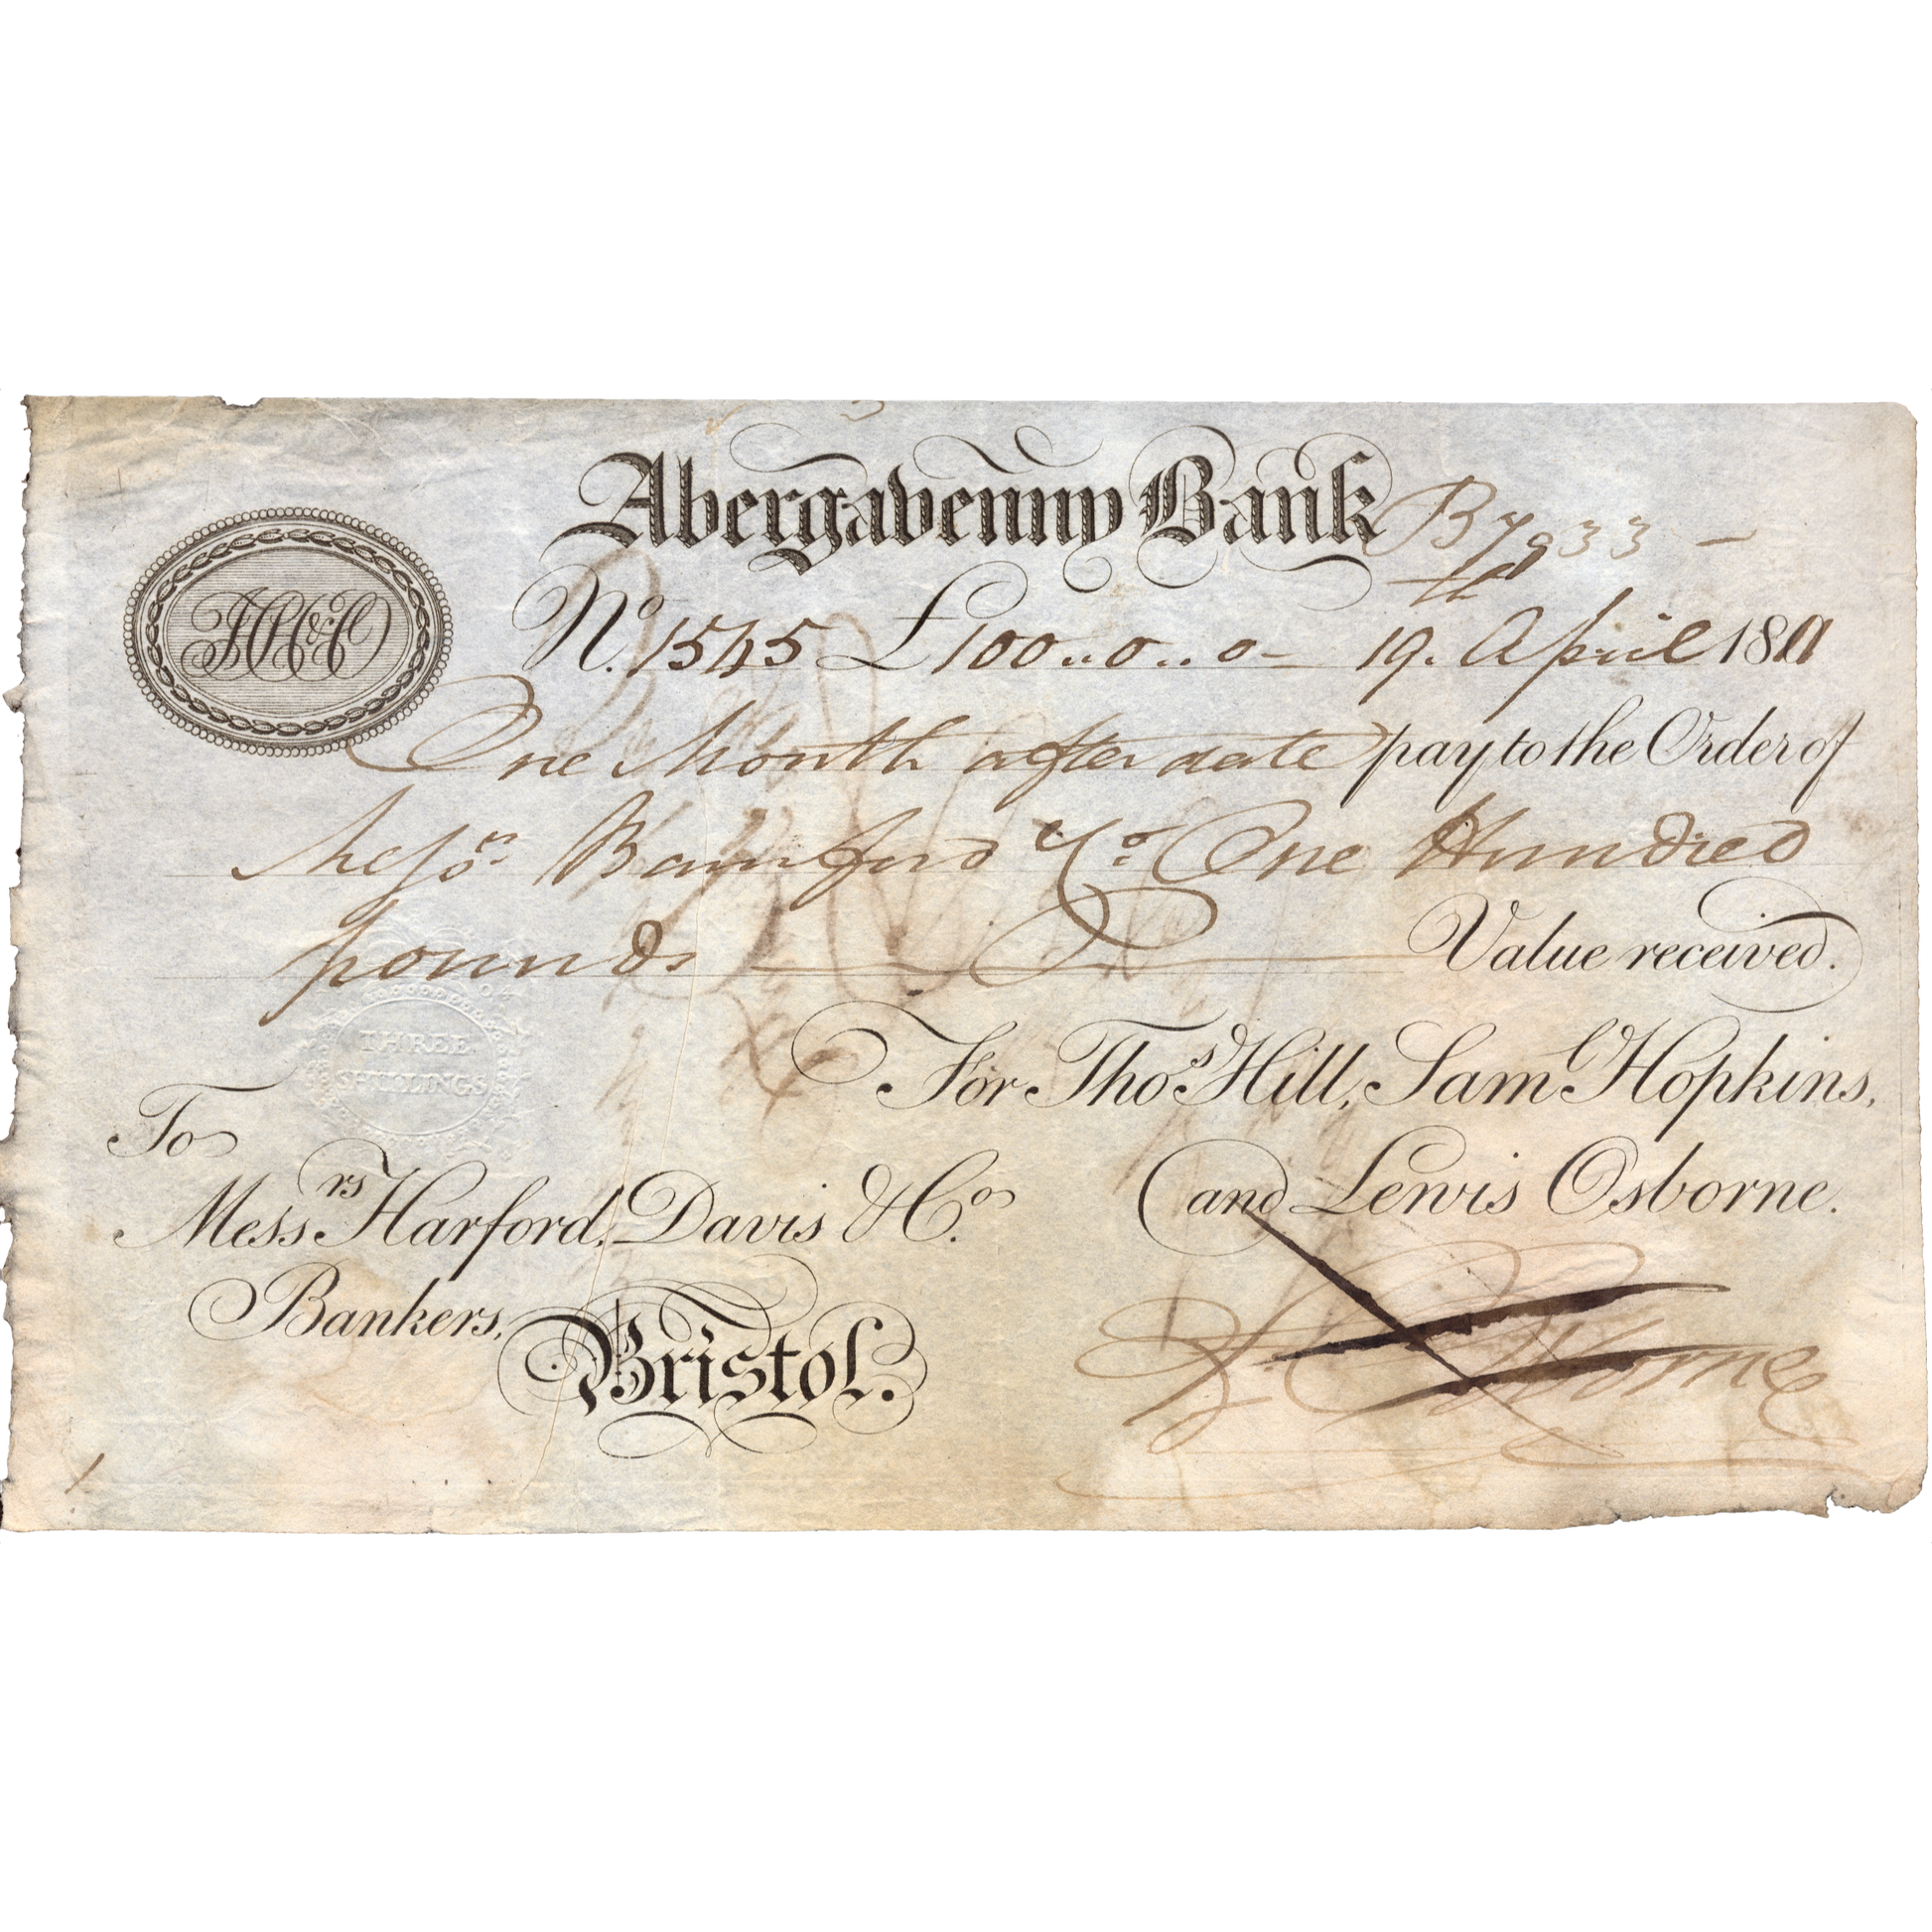 Abergavenny Bank
No. 1545 £100..0..0 - 19. April 1811
One Month after date pay to the Order of
Messrs. Bamford & Co. One Hundred
pounds Value received.
THREE
SHILLINGS
For Thos. Hill, Saml. Hopkins,
and Lewis Osborne.
To
Messrs. Harford, Davis & Co.
Bankers,
Bristol.
L. Osborne